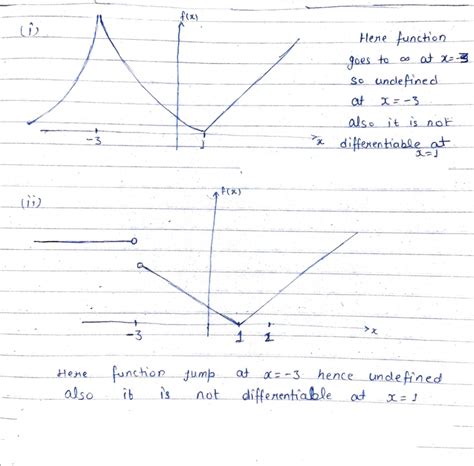 (i)
f(x)
-3
1
x
Here function
goes to ∞ at x=-3
so undefined
at x=-3
also it is not
differentiable at
x=1
(ii)
f(x)
-3
1
x
Here function jump at x=-3 hence undefined
also it is not differentiable at x=1